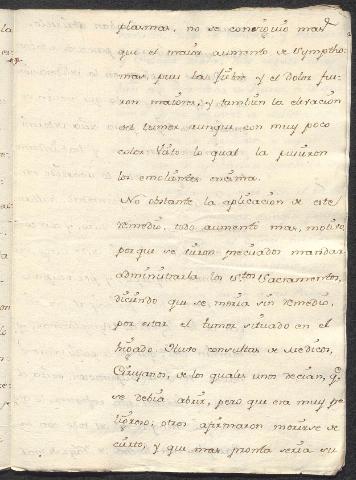 plasmas, no se consiguio mas
que el maior aumento de Symptho-
mas, pues la fiebre y el dolor fue-
ron maiores, y tambien la elevacion
del tumor aunque con muy poco
color. Visto lo qual la pusieron
los emolientes encima.
No obstante la aplicacion de este
remedio, todo aumento mas, motivo
por que se vieron precisados mandar
administrarla los Stos Sacramentos,
diciendo que se moria sin remedio,
por estar el tumor situado en el
higado. Huvo consultas de Medicos,
Cirujanos, de los quales unos decian, q.
se debia abrir, pero que era muy pe-
ligroso, otros afirmaron morirse de
cierto, y que mas pronta seria su